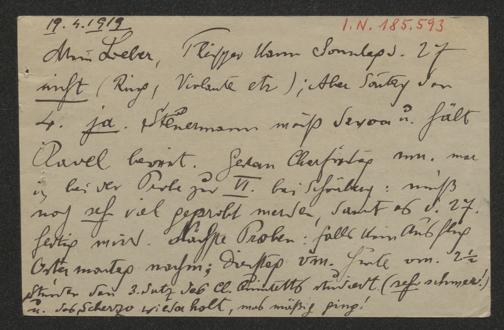 19.4.1919
I.N. 185.593
Mein Lieber, kann Sonntag d. 27
nicht (Ring, Violante etc); Aber Sonntag den
4. ja. Steuermann muß davon u. hält
Ravel bereit. Gestern Charfreitag war
ich bei der Probe zur VI. bei Schönberg: muß
noch sehr viel geprobt werden, damit es d. 27.
fertig wird. Nächste Proben: falls kein Ausflug
Ostermontag nachm; Dienstag vm. Heute vm. 2½
Stunden den 3. Satz des Cl. Quintetts studiert (sehr schwer!)
u. das Scherzo wiederholt, was mäßig ging!